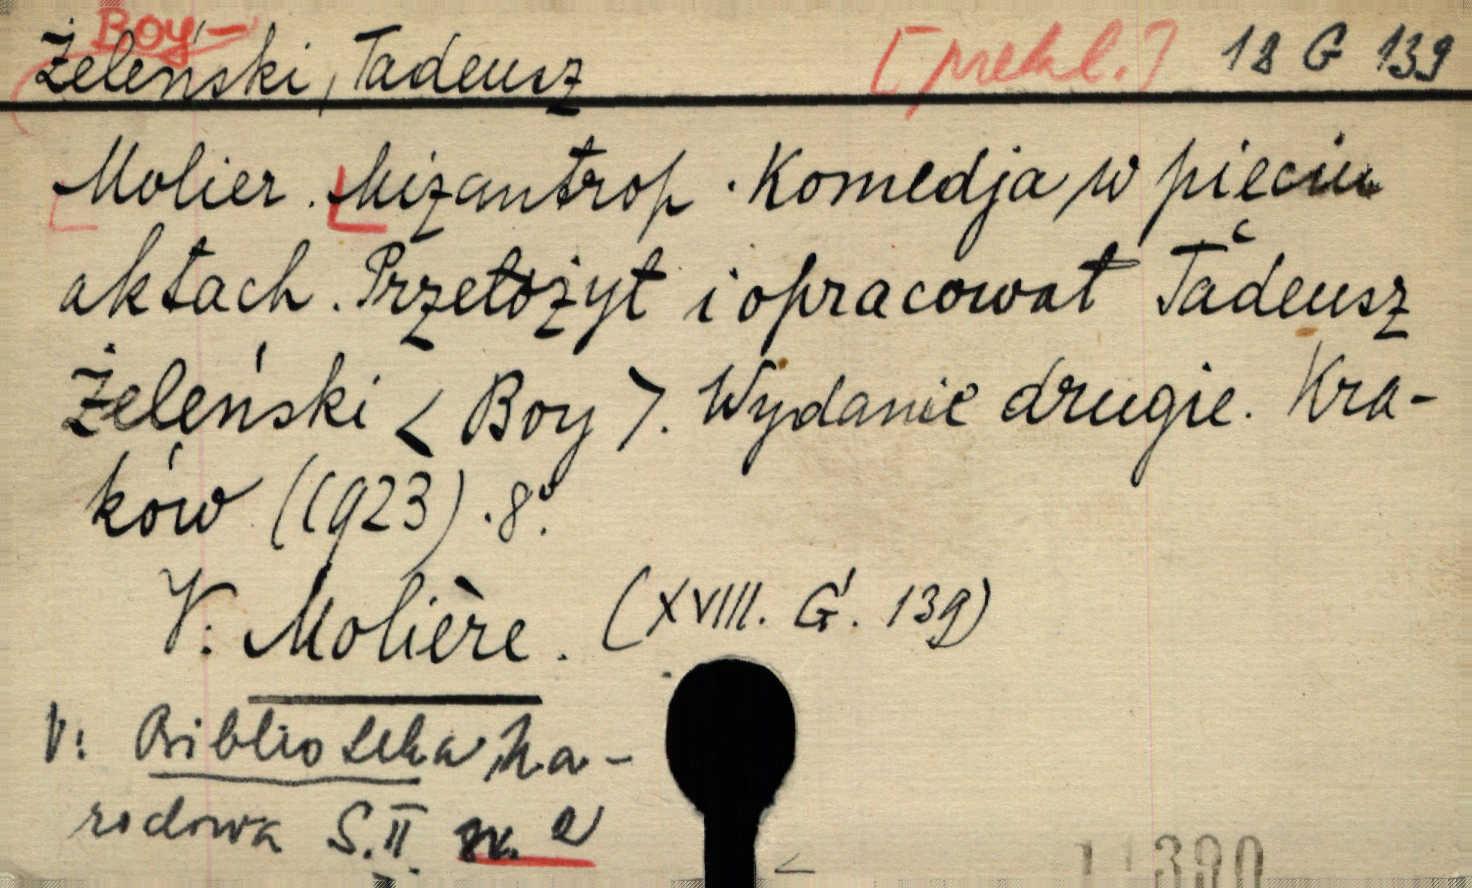 Boy-
Żeleński, Tadeusz [przekł.] 18 G 139
Molier. Mizantrop. Komedja w pięciu
aktach. Przełożył i opracował Tadeusz
Żeleński <Boy>. Wydanie drugie. Kra-
ków (1923). 8°.
V. Molière. (XVIII. G. 139)
V: Biblioteka Na-
rodowa S. II. nr. 2